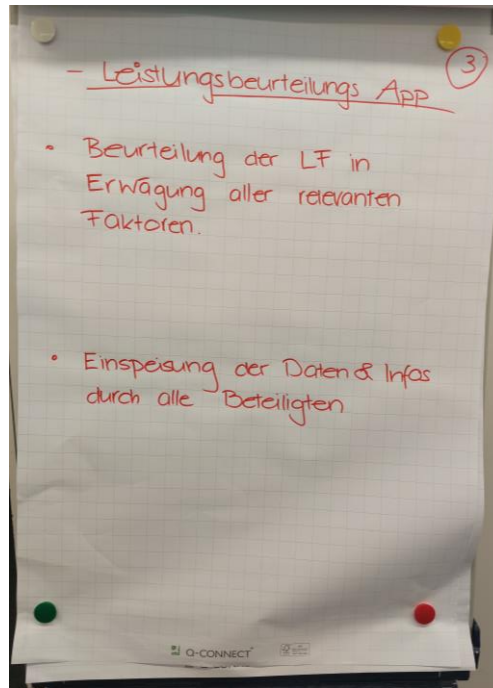 3
- Leistungsbeurteilungs App
• Beurteilung der LF in
Erwägung aller relevanten
Faktoren.
• Einspeisung der Daten & Infos
durch alle Beteiligten
Q-CONNECT